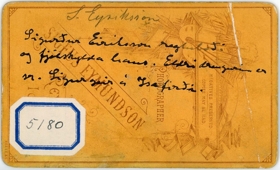 S. Eyriksson
Sigurður Eiríksson regluboði
og fjölskylda hans. Eldri drengurinn er
sr. Sigurgeir á Ísafirði.
EYMUNDSON
PHOTOGRAPHER
5180